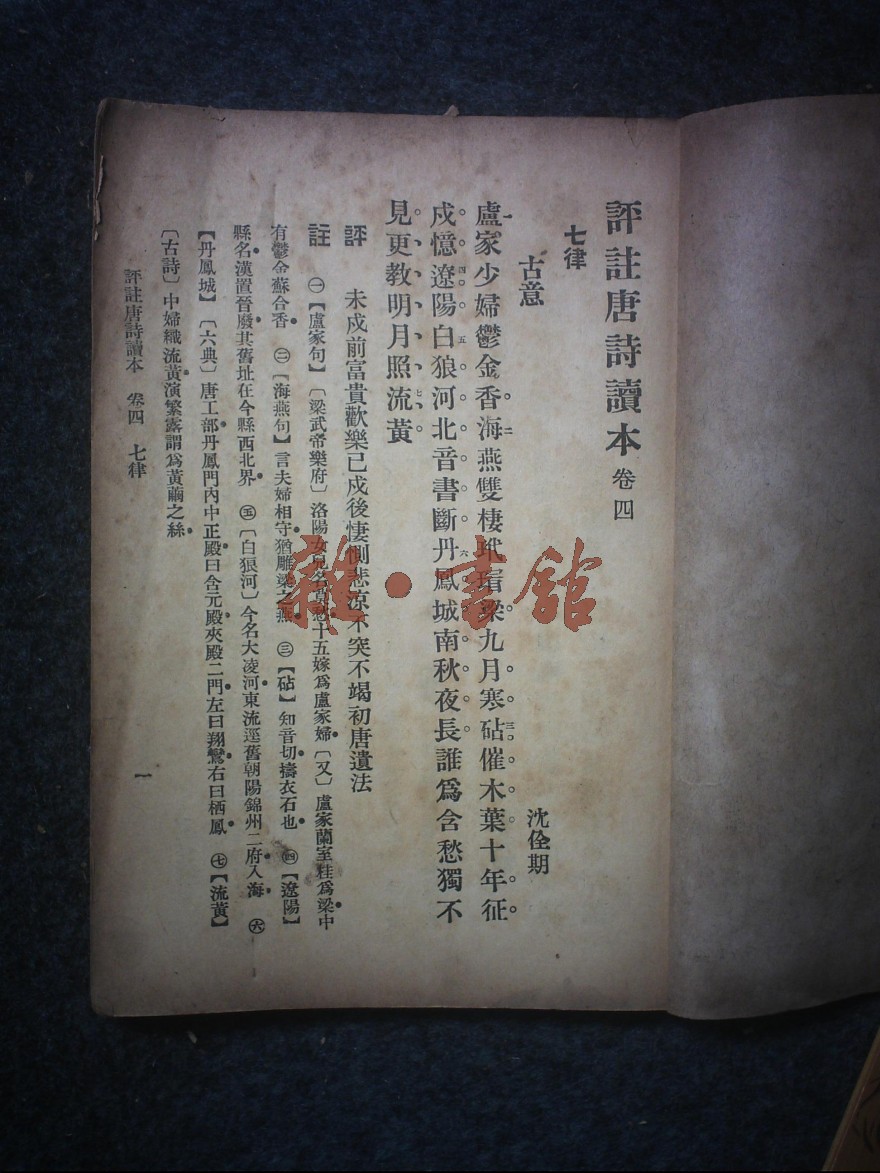 評註唐詩讀本 卷四
七律
古意 沈佺期
盧家少婦鬱金香海燕雙棲玳瑁梁九月寒砧催木葉十年征
戍憶遼陽白狼河北音書斷丹鳳城南秋夜長誰爲含愁獨不
見更教明月照流黃
評 未戍前富貴歡樂已戍後悽惻悲涼不突不竭初唐遺法
註 ㊀【盧家句】〔梁武帝樂府〕洛陽女兒名莫愁十五嫁爲盧家婦〔又〕盧家蘭室桂爲梁中
有鬱金蘇合香 ㊁【海燕句】言夫婦相守猶雕梁之燕 ㊂【砧】知音切擣衣石也 ㊃【遼陽】
縣名漢置晉廢其舊址在今縣西北界 ㊄【白狼河】今名大凌河東流逕舊朝陽錦州二府入海 ㊅
【丹鳳城】〔六典〕唐工部丹鳳門內中正殿曰含元殿夾殿二門左曰翔鸞右曰栖鳳 ㊆【流黃】
〔古詩〕中婦織流黃演繁露謂爲黃繭之絲
評註唐詩讀本 卷四 七律 一
雜·書館